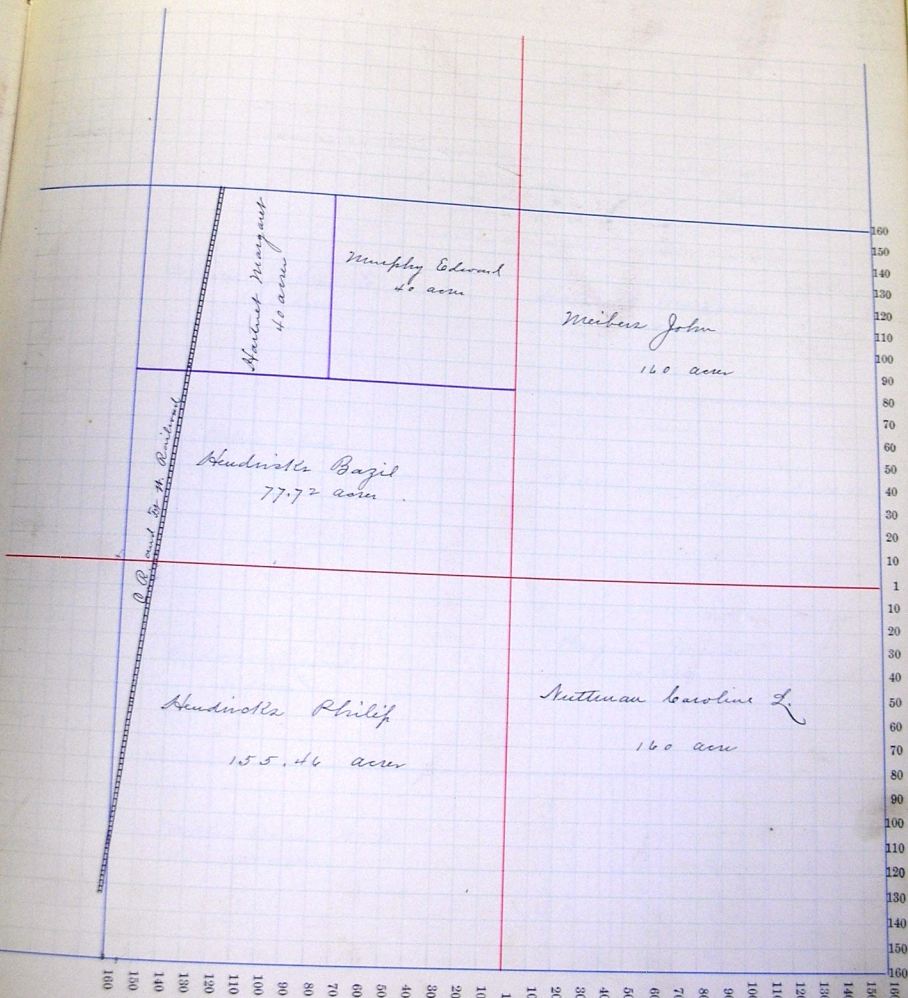 Hartnet Margaret
40 acres
Murphy Edward
40 acres
Meibers John
160 acres
Hendricks Bazil
77.72 acres
R and Railroad
Hendricks Philip
155.46 acres
Nuttman Caroline L.
160 acres
160
150
140
130
120
110
100
90
80
70
60
50
40
30
20
10
1
10
20
30
40
50
60
70
80
90
100
110
120
130
140
150
160
160 150 140 130 120 110 100 90 80 70 60 50 40 30 20 10 1 10 20 30 40 50 60 70 80 90 100 110 120 130 140 150 160